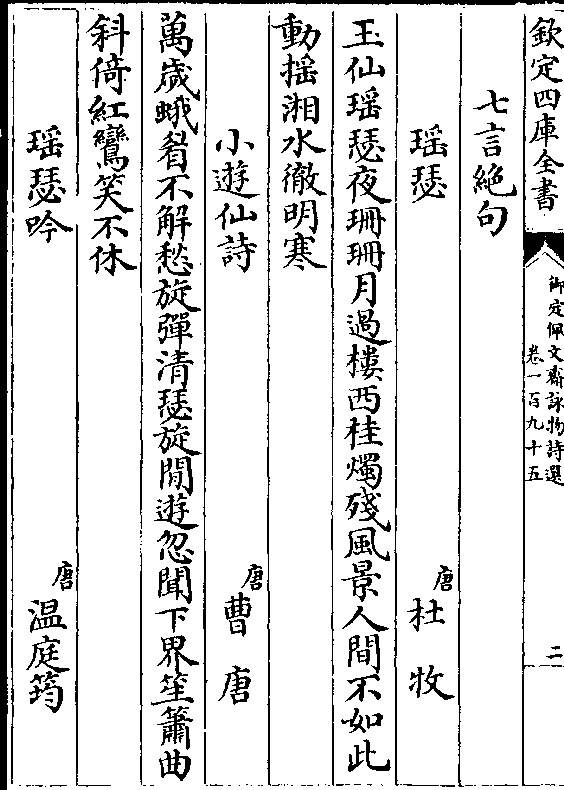 欽定四庫全書
御定佩文齋詠物詩選
卷一百九十五
二
七言絶句
瑶瑟
唐
杜牧
玉仙瑶瑟夜珊珊月過樓西桂燭殘風景人間不如此
動揺湘水徹明寒
小遊仙詩
唐
曹唐
萬歲蛾眉不解愁旋彈清瑟旋閒遊忽聞下界笙簫曲
斜倚紅鸞笑不休
瑶瑟吟
唐
温庭筠